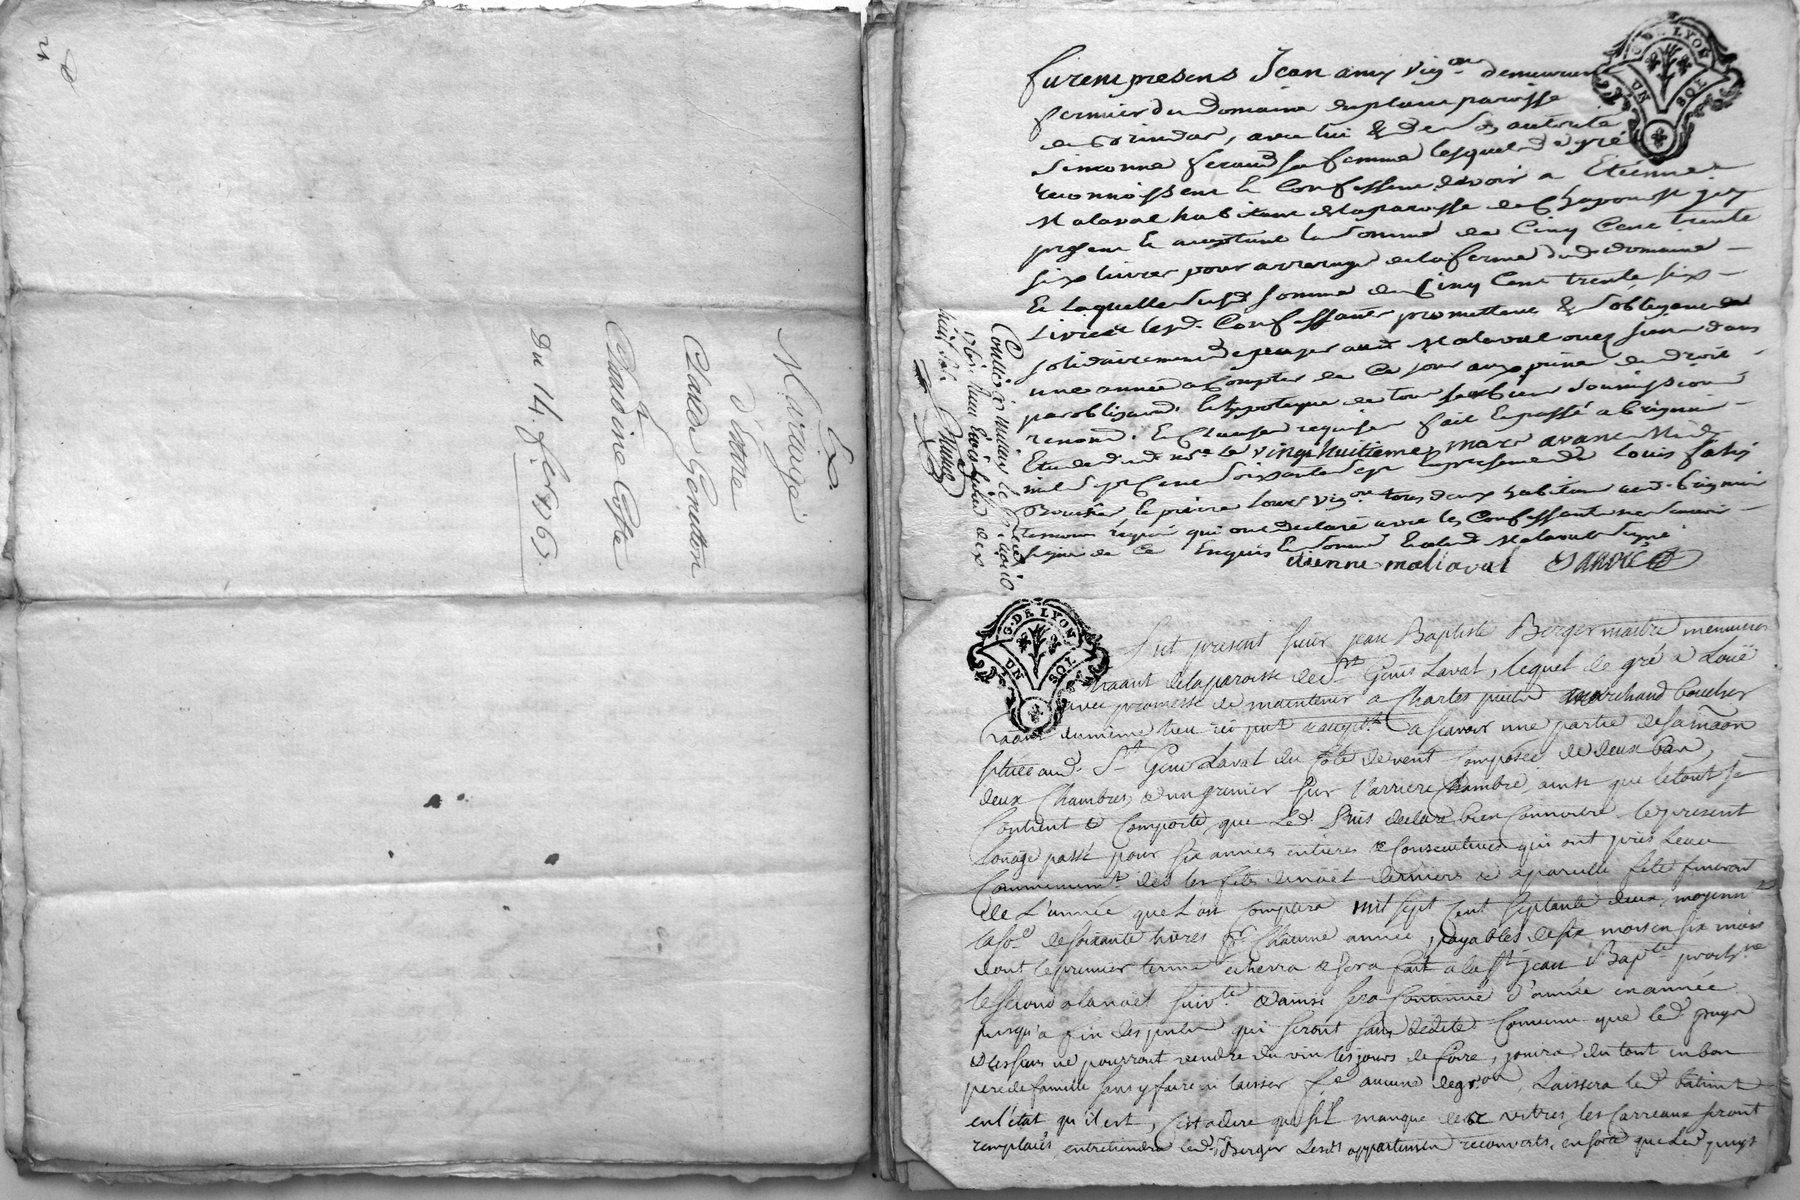 Ex.
Mariage
d'entre
Claude Gonetton
&
Claudine Coste
Du 14. fev. 1763.
G. DE LYON
UN SOL
furent presens Jean amy vig.on demeurant
fermier du domaine duplan paroisse
de Brindas, avec lui & de lui autorisée
simonne feraud sa femme lesquels de gré
reconnoissent & Confessent devoir a Etienne
Malaval habitant de la paroisse de Chaponost icy
present & acceptant la somme de Cinq Cent trente
six livres pour arrerages de la ferme dud. domaine
Et laquelle susd. somme de Cinq Cent trente six
Livres lesd. Confessants promettent & s'obligent
solidairement de payer aud. Malaval ou es siens dans
une année a Compter de Ce jour aux peine de droit
par obligaon. & hypoteque de tous ses biens soumission
renonon. & Clauses requises fait & passé a brignai
Etude dud. nore. le vingt huitieme mars avant Midy
mil sept Cent soixante sept en presence de Louis fahy
Boucher & pierre Tour vig.on tous deux habitans aud. brignai
temoins requis qui ont declaré avec les Confessants ne savoir
signer de Ce Enquis & sommé & aled. Malaval signé
etienne mallaval
G. DE LYON
UN SOL
fut present sieur jean Baptiste Berger maitre menuisier
h.aant de la paroisse de St. Genis Laval, lequel de gré a Loüé
avec promesse de maintenir a Charles puis marchand boucher
h.aant du meme lieu ici pnt & accept.t a scavoir une partie de sa maison
scituée aud. St. Genis Laval du coté de vent composée de deux bas,
deux Chambres, & un grenier sur l'arriere Chambre, ainsi que le tout se
Contient & Comporte, que Led. puis declare bien Connoitre le present
Loüage passé pour six années entieres & Consecutives qui ont pris Leur
Commencement des les fêtes de noël dernieres & a pareille fête finiront
de L'année que L'on comptera mil sept Cent septante deux, moyennt.
la so.e de soixante livres pr. Chacune année, payables de six mois en six mois
dont le premier terme echerra & sera fait a la st. jean Bapte. proch.ne
le second a la noël suiv.te & ainsi sera Continué d'année en année
jusqu'a fin des pntes qui seront sans dedite Comme que led. puys
& les siens ne pourront vendre du vin les jours de foire, jouira du tout en bon
pere de famille sans y faire ni laisser fe. aucune degron. Laissera led. batiment
en l'état qu'il est, C'est a dire que s'il manque de vitres, les Carreaux seront
remplacés entretiendra led. Berger Lesds. appartemens recouverts, en sorte que Led. puys